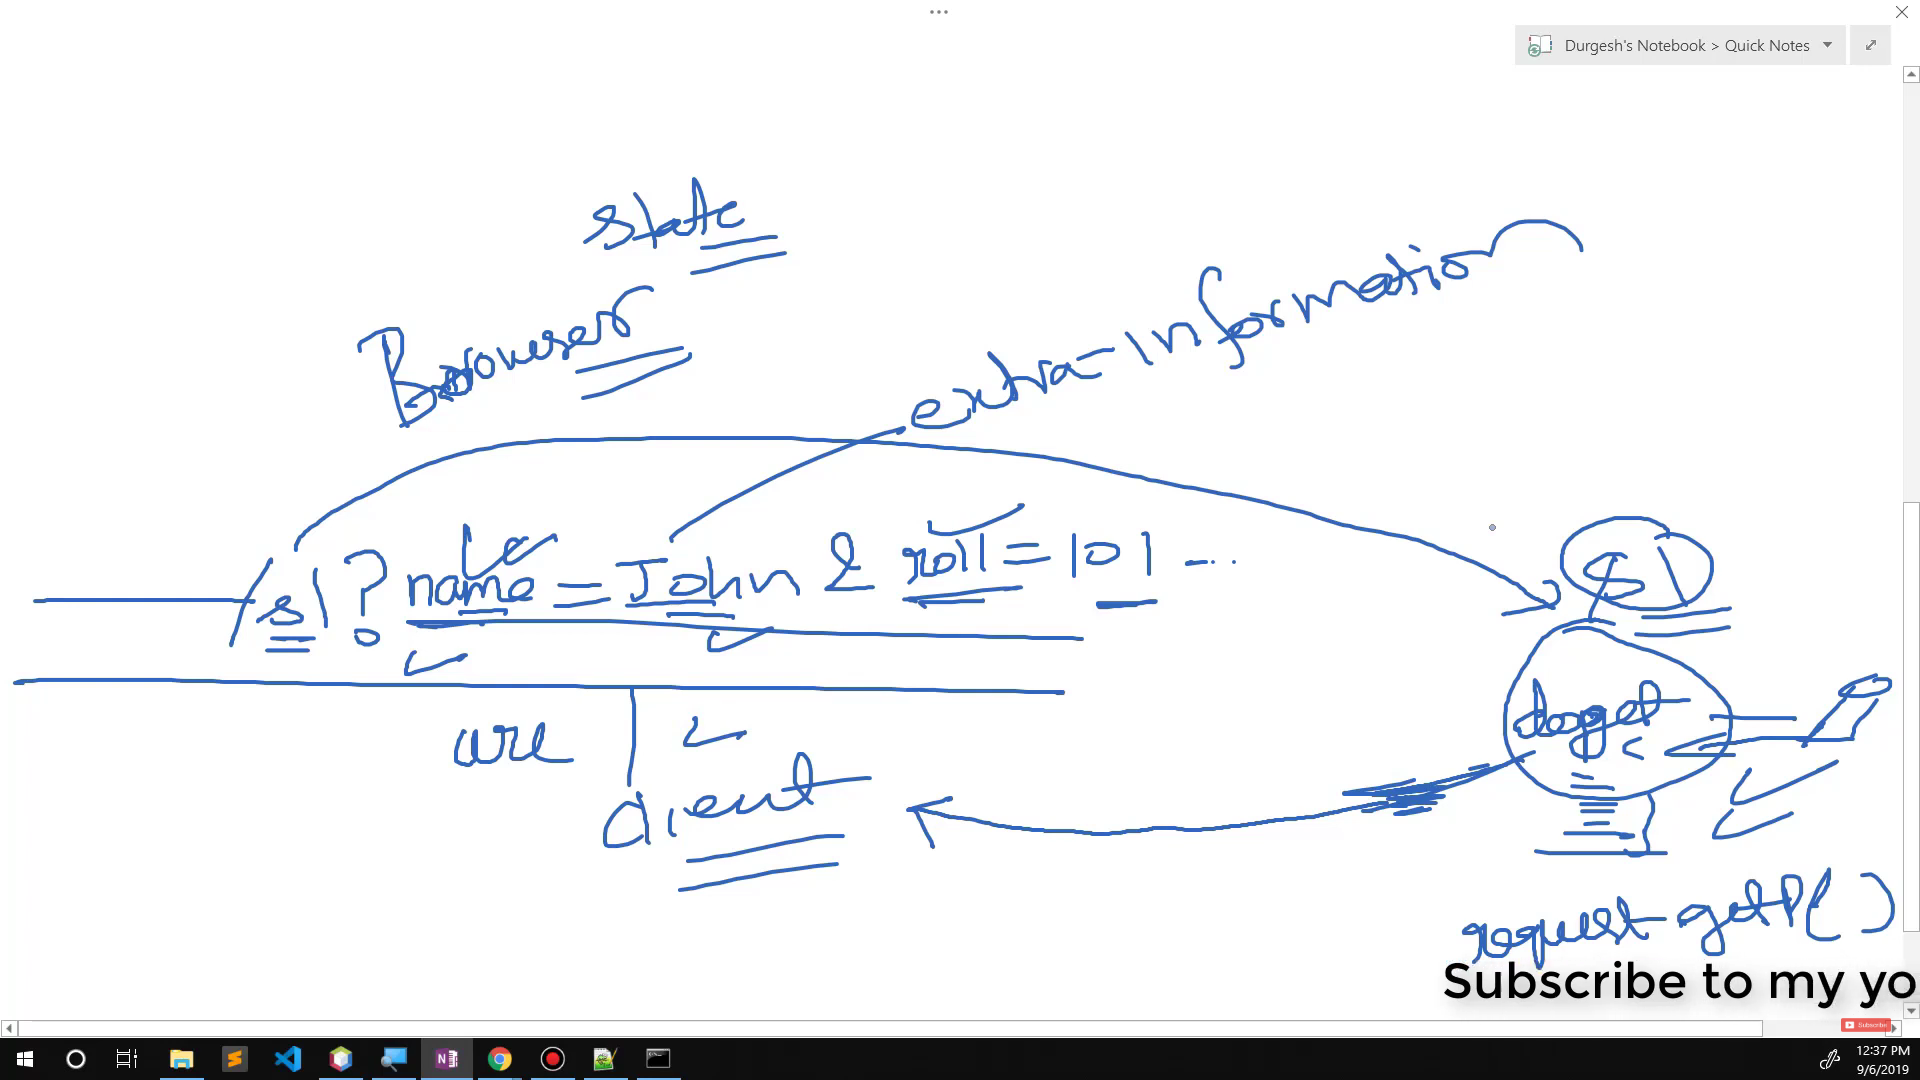 Durgesh's Notebook > Quick Notes
state
Browser
extra-information
/s1 ? name = John & roll = 101 ...
S1
doget
url
client
request-getP( )
Subscribe to my yo
Subscribe
12:37 PM
9/6/2019